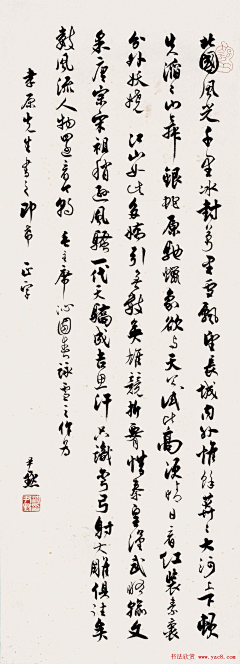 北國風光千里冰封萬里雪飄望長城內外惟餘莽〻大河上下頓
失滔〻山舞銀蛇原馳蠟象欲与天公試比高須晴日看紅裝素裹
分外妖嬈 江山如此多嬌引無數英雄競折腰惜秦皇漢武略輸文
采唐宗宋祖稍遜風騷一代天驕成吉思汗只識彎弓射大雕俱往矣
數風流人物還看今朝 毛主席沁園春詠雪之作為
原先生書之即希 正字
尹默
书法欣赏 www.yac8.com